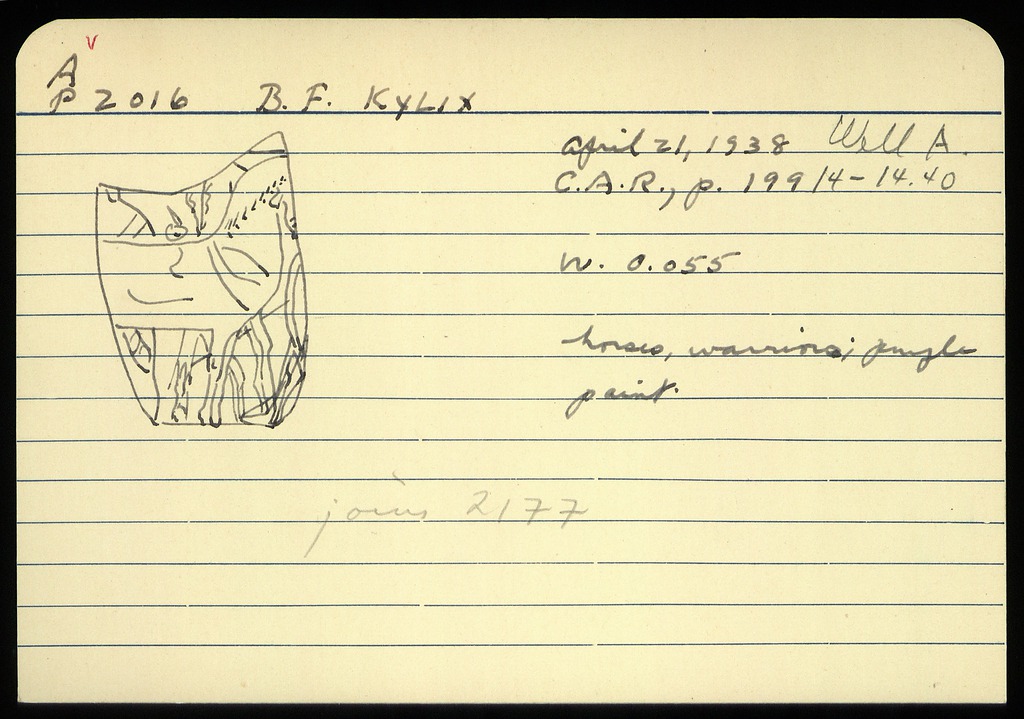 v
A
P 2016 B. F. KYLIX
April 21, 1938 Well A.
C.A.R., p. 199 14-14.40
W. 0.055
horses, warriors; purple
paint.
joins 2177